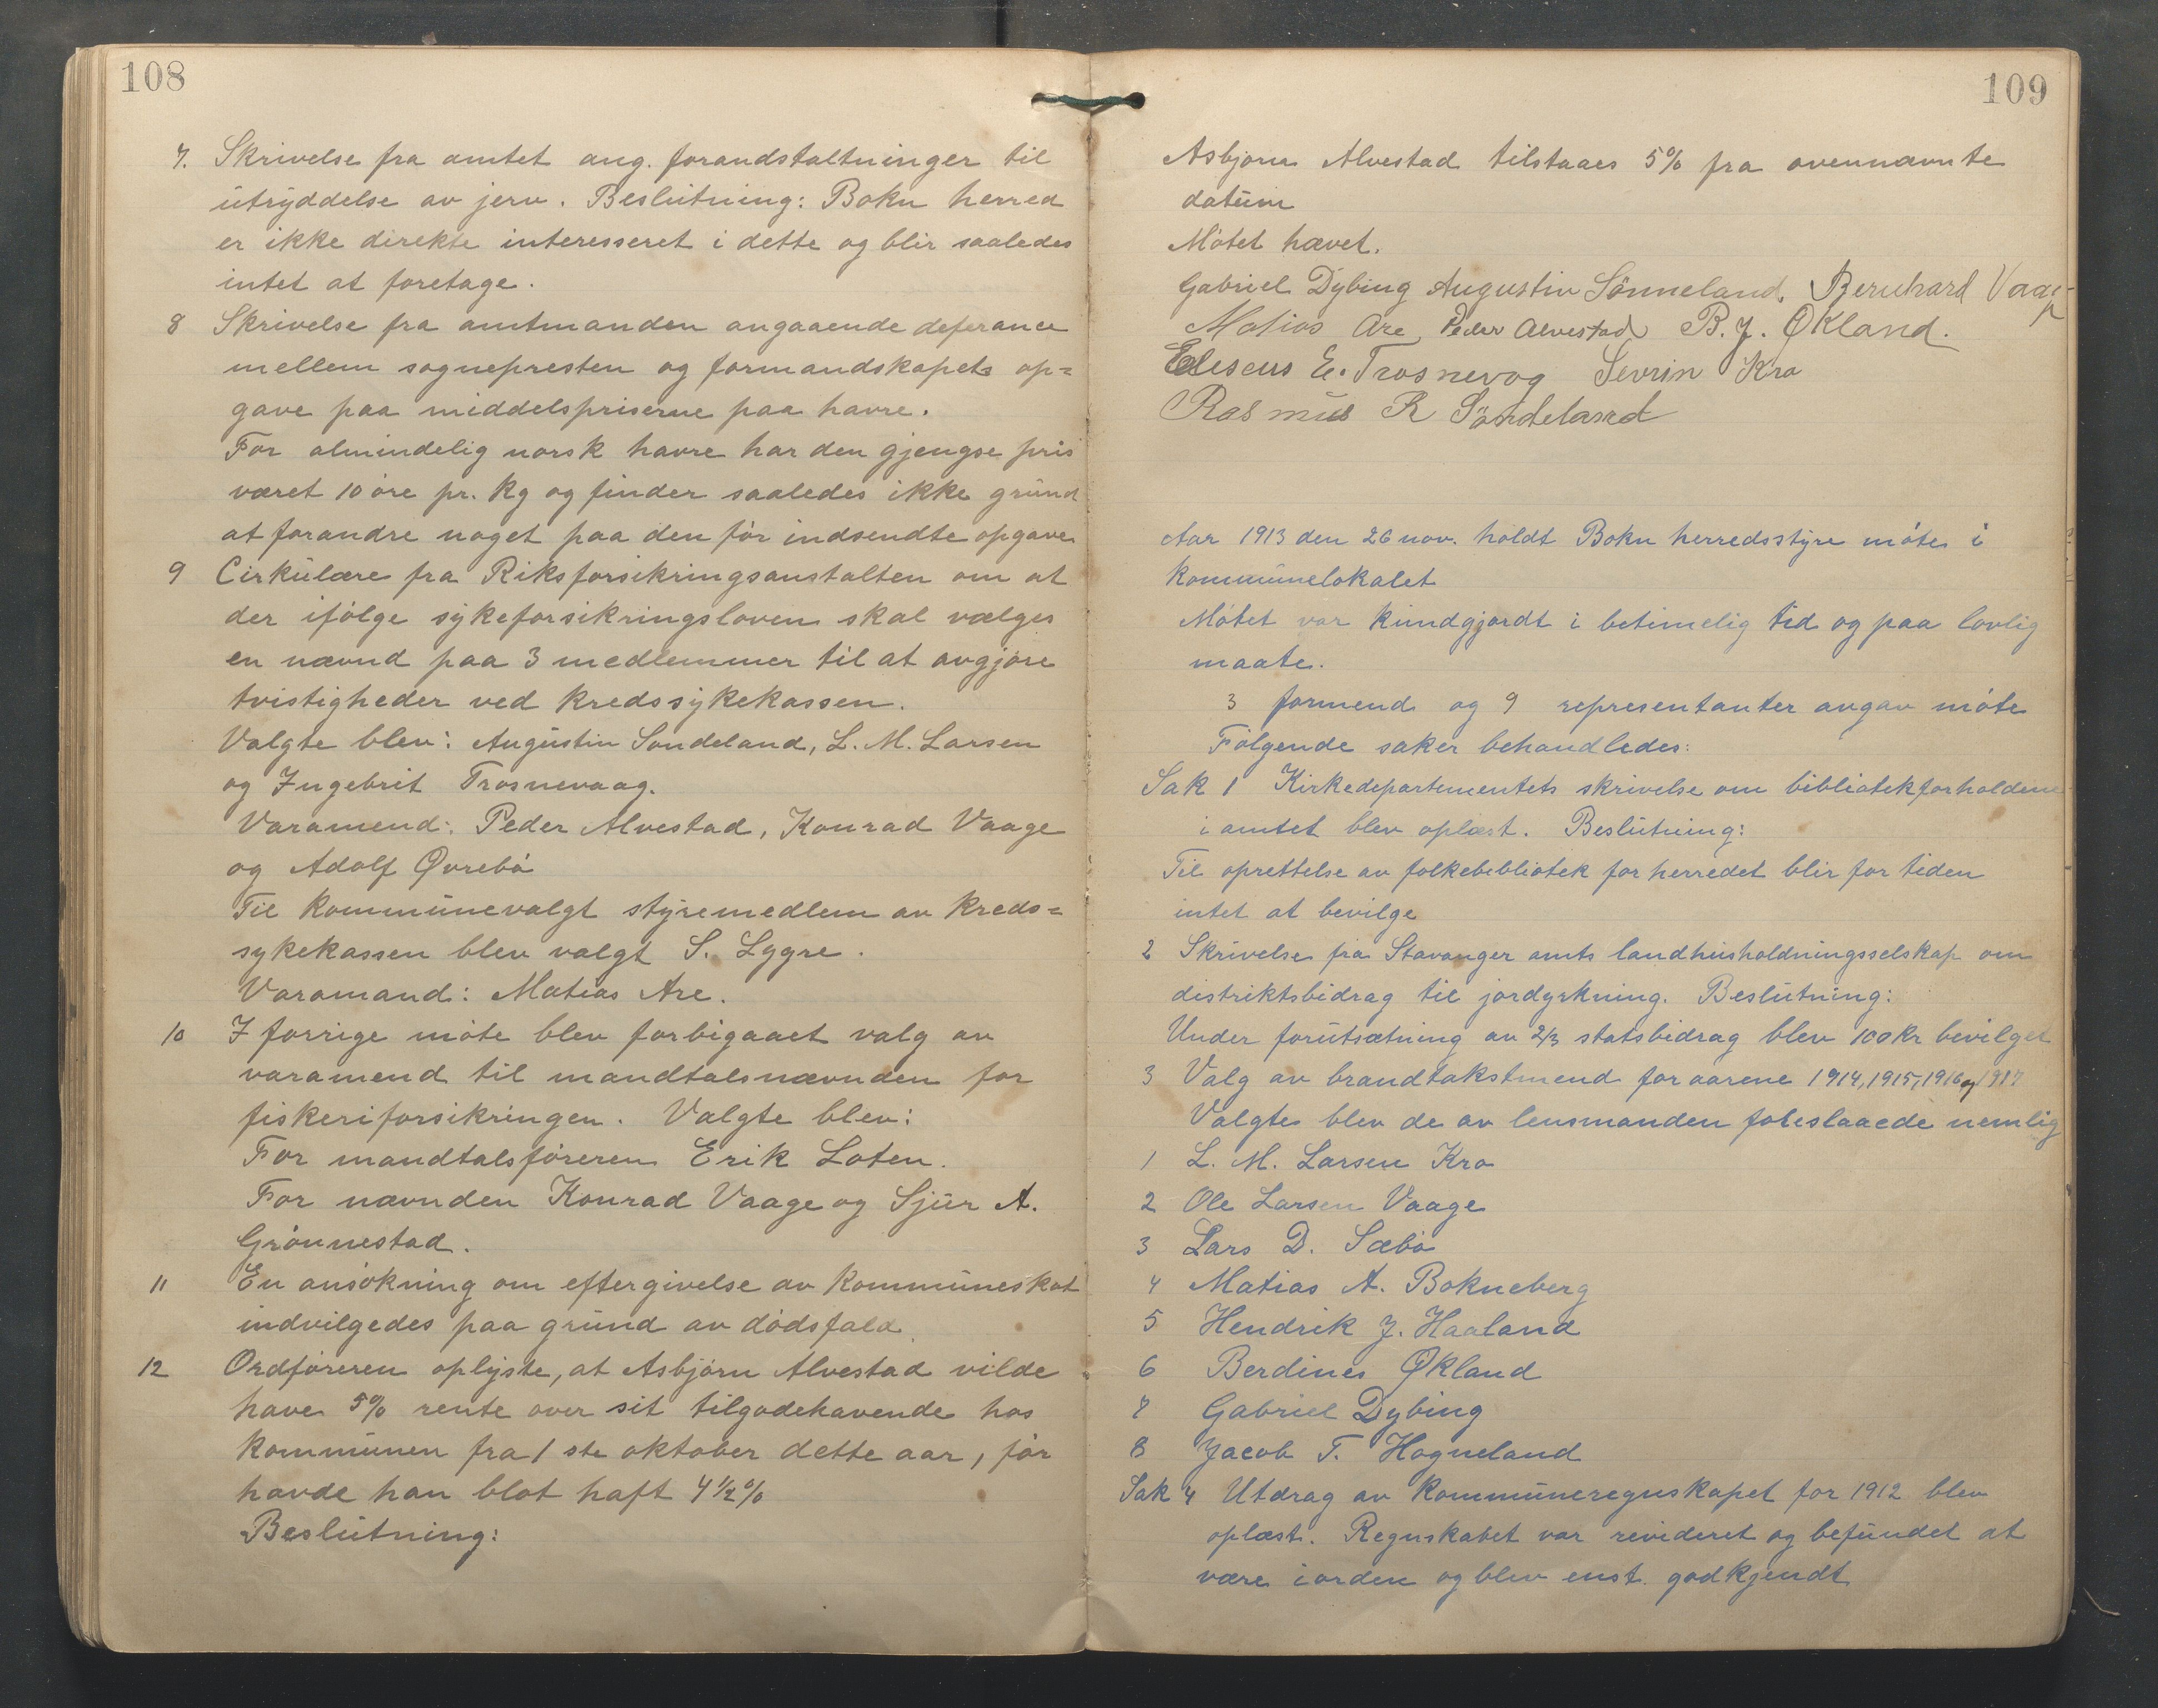 108
7. Skrivelse fra amtet ang. forandstaltninger til
utryddelse av jerv. Beslutning: Bokn herred
er ikke direkte interesseret i dette og blir saaledes
intet at foretage.
8 Skrivelse fra amtmanden angaaende deferance
mellem sognepresten og formandskapets op=
gave paa middelspriserne paa havre.
For almindelig norsk havre har den gjengse pris
været 10 øre pr. kg og finder saaledes ikke grund
at forandre noget paa den før indsendte opgave
9 Cirkulære fra Riksforsikringsanstalten om at
der ifølge sykeforsikringsloven skal vælges
en nævnd paa 3 medlemmer til at avgjøre
tvistigheder ved kredssykekassen.
Valgte blev: Augustin Sondeland, L. M. Larsen
og Ingebrit Trosnevaag.
Varamend: Peder Alvestad, Konrad Vaage
og Adolf Øvrebø
Til kommunevalgt styremedlem av kreds=
sykekassen blev valgt S. Lygre.
Varamand: Matias Are.
10 I forrige møte blev forbigaaet valg av
varamend til mandtalsnævnden for
fiskeriforsikringen. Valgte blev:
For mandtalsføreren Erik Loten.
For nævnden Konrad Vaage og Sjur A.
Grønnestad.
11 En ansøkning om eftergivelse av kommuneskat
indvilgedes paa grund av dødsfald.
12 Ordføreren oplyste, at Asbjørn Alvestad vilde
have 5% rente over sit tilgodehavende hos
kommunen fra 1ste oktober dette aar, før
havde han blot haft 4 1/2 %
Beslutning:
109
Asbjørn Alvestad tilstaaes 5% fra ovennævnte
datum
Møtet hævet.
Gabriel Dybing Augustin Sønneland. Bernhard Vaage
Matias Are Peder Alvestad B. J. Økland.
Eliseus E. Trosnevog Sevrin Kro
Rasmus R Søndeland
Aar 1913 den 26 nov. holdt Bokn herredsstyre møte i
kommunelokalet
Møtet var kundgjordt i betimelig tid og paa lovlig
maate.
3 formend og 9 representanter avgav møte
Følgende saker behandledes:
Sak 1 Kirkedepartementets skrivelse om bibliotekforholdene
i amtet blev oplæst. Beslutning:
Til oprettelse av folkebibliotek for herredet blir for tiden
intet at bevilge
2 Skrivelse fra Stavanger amts landhusholdningsselskap om
distriktsbidrag til jordyrkning. Beslutning:
Under forutsætning av 2/3 statsbidrag blev 100 kr bevilget
3 Valg av brandtakstmend for aarene 1914, 1915, 1916 og 1917
Valgte blev de av lensmanden foreslaaede nemlig
1 L. M. Larsen Kro
2 Ole Larsen Vaage
3 Lars D. Sæbø
4 Matias A. Bokneberg
5 Hendrik J. Haaland
6 Berdines Økland
7 Gabriel Dybing
8 Jacob T. Hogneland
Sak 4 Utdrag av kommuneregnskapet for 1912 blev
oplæst. Regnskabet var revideret og befundet at
være i orden og blev enst. godkjendt